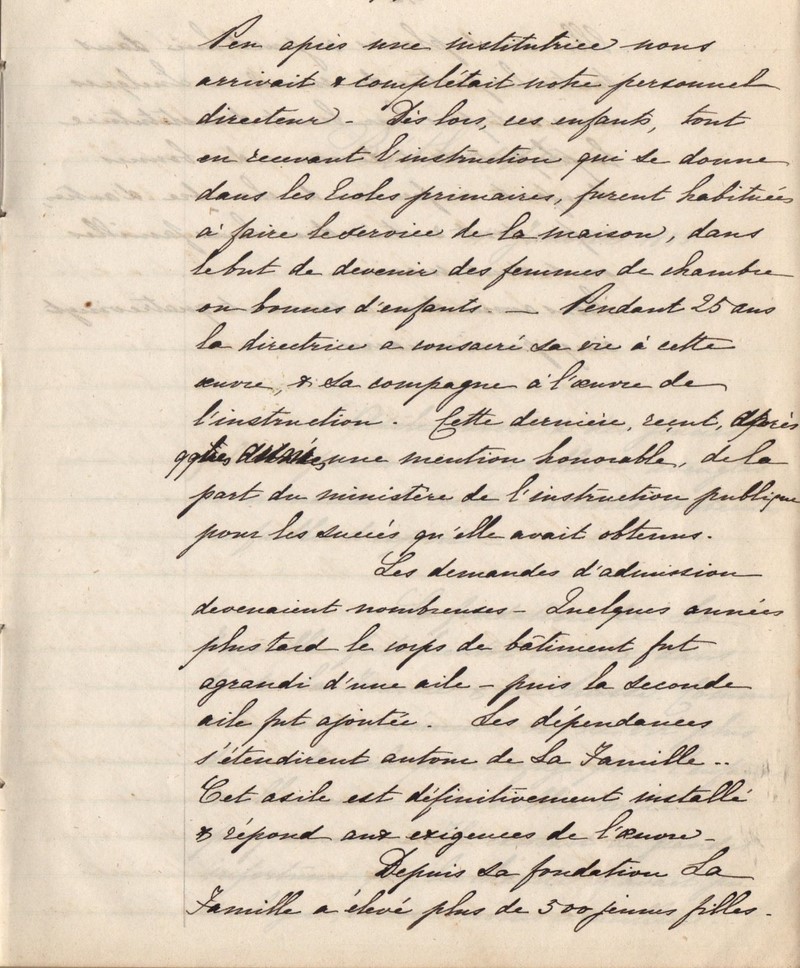 Peu après une institutrice nous
arrivait & complétait notre personnel
directeur - Dès lors, ces enfants, tout
en recevant l'instruction qui se donne
dans les Ecoles primaires, furent habituées
à faire le service de la maison, dans
le but de devenir des femmes de chambre
ou bonnes d'enfants. — Pendant 25 ans
la directrice a consacré sa vie à cette
œuvre, & sa compagne à l'œuvre de
l'instruction. Cette dernière, reçut, après
une mention honorable, de la
part du ministère de l'instruction publique
pour les succès qu'elle avait obtenus.
Les demandes d'admission
devenaient nombreuses - Quelques années
plus tard le corps de bâtiment fut
agrandi d'une aile - puis la seconde
aile fut ajoutée. Les dépendances
s'étendirent autour de La Famille ..
Cet asile est définitivement installé
& répond aux exigences de l'œuvre -
Depuis sa fondation La
Famille a élevé plus de 500 jeunes filles.